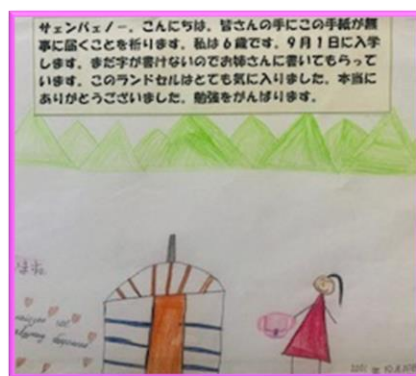 サェンバェノー。こんにちは。皆さんの手にこの手紙が無
事に届くことを祈ります。私は6歳です。9月1日に入学
します。まだ字が書けないのでお姉さんに書いてもらって
います。このランドセルはとても気に入りました。本当に
ありがとうございました。勉強をがんばります。